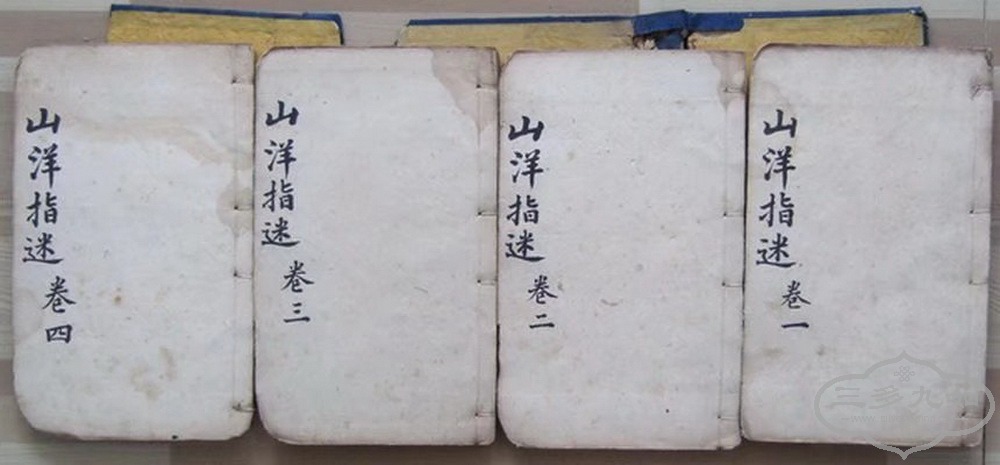 山洋指迷 卷一
山洋指迷 卷二
山洋指迷 卷三
山洋指迷 卷四
三多九如